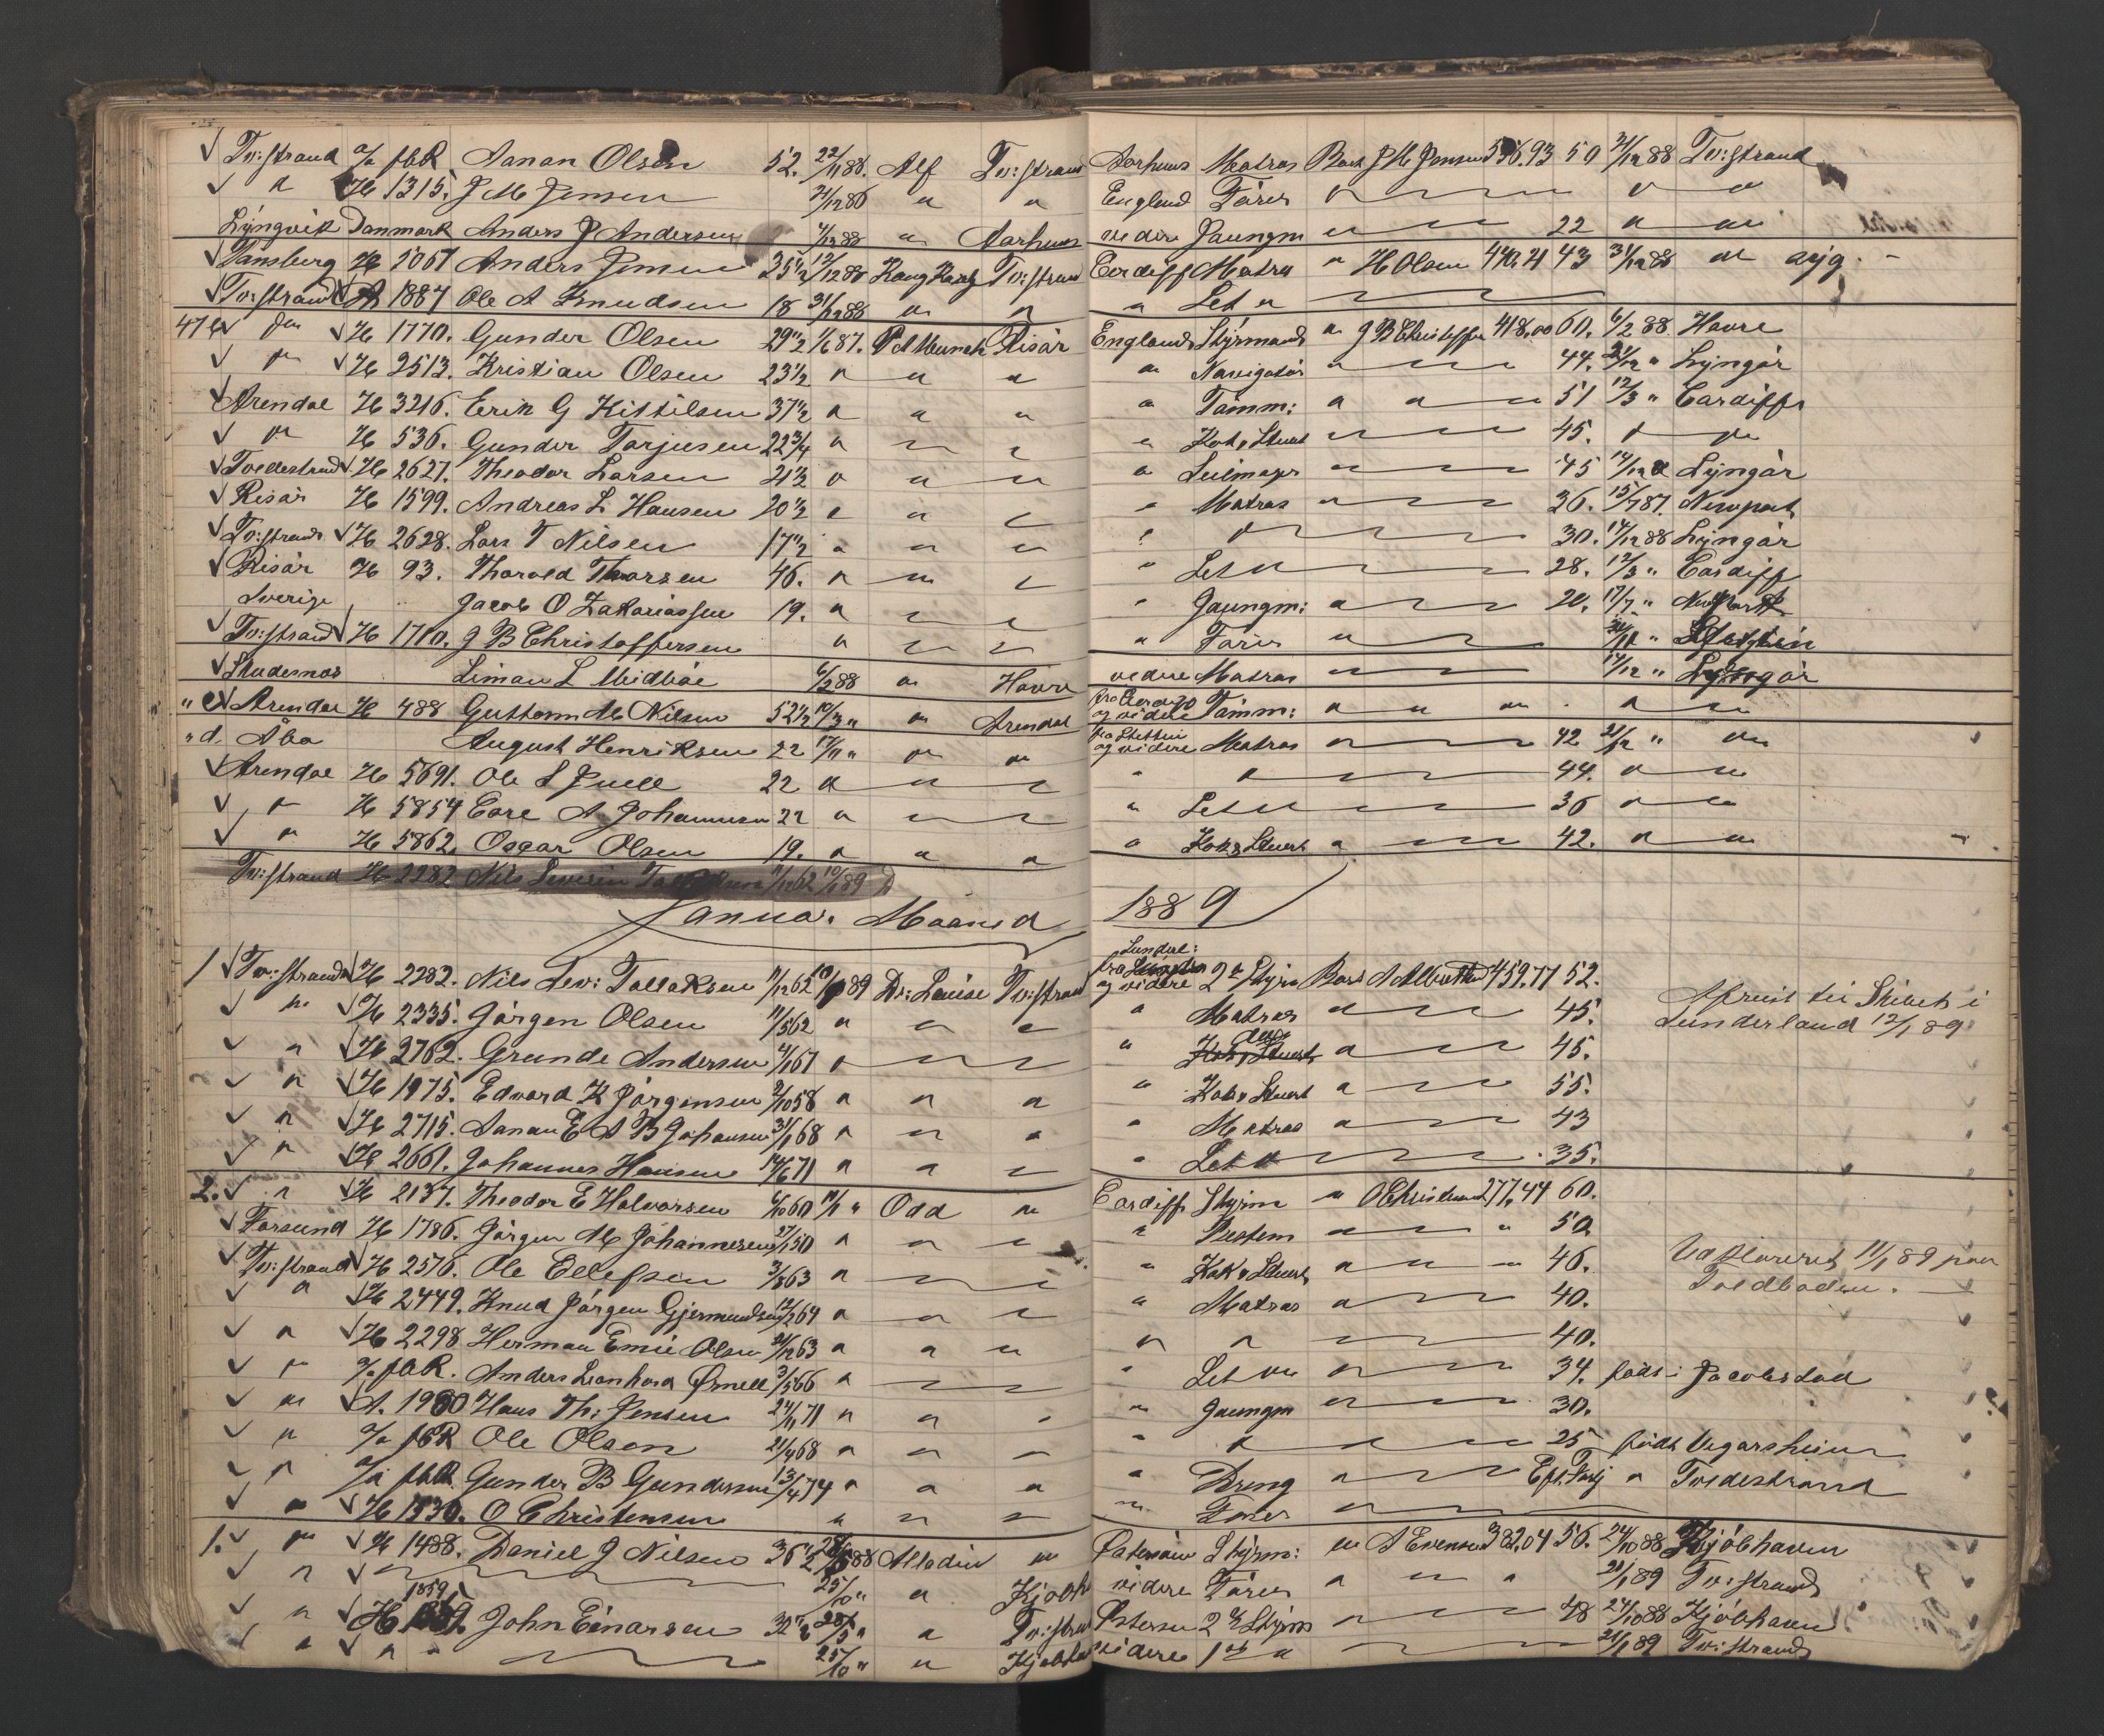 Tv:strand a/a fbR Aanon Olsen 52. 22/11 88. Alf Tv:strand Aarhuus Matros Bark J M Jensen 536.93 50 31/12 88 Tv:strand
" H 1315. J M Jensen 31/12 86 " " England Fører " " "
Lyngvik Danmark Anders J Andersen 4/12 88 " Aarhuus videre Jaungm " 22 " "
Tønsberg H 5061 Anders Jensen 35 1/2 12/12 80 Tv:strand Cardiff Matros " H Olsen 440.21 43 31/12 88 " syg.
Tv:strand A 1887 Ole A Knudsen 18 31/12 88 " " " Let "
47 H 1770. Gunder Olsen 29 1/2 1/6 87. P A Munch Risør England Styrmand " J B Christoffersen 418,00 60. 6/2 88. Havre
" H 2513. Kristian Olsen 23 1/2 " " " " Navigatør " 44. 21/12 " Lyngør
Arendal H 3216. Erik G Kittilsen 37 1/2 " " " " Tømm: " " 51 12/3 " Cardiff
" H 536. Gunder Tarjusen 22 3/4 " " Kok & Stuert 45. " "
Tvedestrand H 2627. Theodor Larsen 21 1/2 " " " " Seilmager 45 14/12 " Lyngør
Risør H 1599. Andreas L Hansen 20 1/2 " " " Matros " 36. 15/7 87. Newport
Tv:strand H 2628. Lars T Nilsen 17 1/2 " " " " " 30. 14/12 88 Lyngør
Risør H 93. Tharald Thorsen 46. " " " Let " 28. 12/3 " Cardiff
Sverige Jacob O Zakariassen 19. " " Jaungm: " 20. 17/7 "
Tv:strand H 1710. J B Christoffersen " " Fører "
Skudesnæs Simon L Midbøe 6/2 88 " Havre videre Matros 14/12 " Lyngør
" c Arendal H 488 Guttorm M Nilsen 52 1/2 10/3 " " Arendal fra Cardiff og videre Tømm: " " " " "
" d. Åbo August Henriksen 22 17/11 " " " fra Stettin og videre Matros " 42 21/12 " "
Arendal H 5691. Ole S Juell 22 " " " " 44. " "
" H 5854 Carl A Johannesen 22 " " Let " 36 " "
" H 5862. Oscar Olsen 19. " " " " Kok & Stuert " 42. " "
Tv:strand H 2282 Nils Severin 11/12 62 10/1 89
Januar Maaned 1889
1 Tv:strand H 2282. Nils Sev: Tallaksen 11/12 62 10/1 89 Dr: Louise Tv:strand fra Sunderl: og videre 2d Styrm Bark 459.77 52.
" H 2335. Jørgen Olsen 11/5 62 " " " " Matros " 45. Afreist til Skibet i
" H 2762. Grunde Andersen 4/1 67 " " Kok & Stuert " 45. Sunderland 12/1 89
" H 1975. Edvard K Jørgensen 2/10 58 " " " " Kok & Stuert " 55.
" H 2715. Aanon E A B Johansen 31/1 68 " " " " Matros " 43
" H 2661. Johannes Hansen 14/6 71 " " " Let " 35.
2. " H 2137. Theodor E Halvorsen 6/10 60 11/1 " Odd " Cardiff Styrm " O Christensen 277,44 60.
Farsund H 1786. Jørgen M Johannesen 27/1 50 " " " " " 50
Tv:strand H 2576. Ole Ellefsen 3/8 63 " " Kok & Stuert " " 46. Udklareret 11/1 89 paa
" H 2449. Knud Jørgen Gjermundsen 12/2 64 " " " " Matros " 40. Toldboden.
" H 2298 Herman Emil Olsen 21/12 63 " " " " " 40.
" a/a fbR. Anders Leonhard Ørnell 3/5 66 " " Let " " 34. født i Jacobstad
" A. 1980 Hans Th: Jensen 24/11 71 " " " " Jaungm " 30.
" a/a fbR Ole Olsen 21/4 68 " " " " " 25 født Vegarsheim
" a/a fbR Gunder B Gundersen 13/4 74 " " " " Dreng " " Tvedestrand
" H 1530. O Christensen " " " " Fører "
1. " H 1488. Daniel J Nilsen 36 1/2 28/5 88 Alladin " Østersøen Styrm: " A Evensen 382.04 56. 24/10 88 Kjøbhavn
" 25/10 " " Kjøbh videre Fører " " " 21/1 89 Tv:strand
" H 1859 John Einarsen 32 1/2 28/5 " " Tv:strand Østersø 2d Styrm " 48 24/10 88 Kjøbhavn
" " 25/10 " " Kjøbhavn videre 1st " 21/1 89 Tv:strand